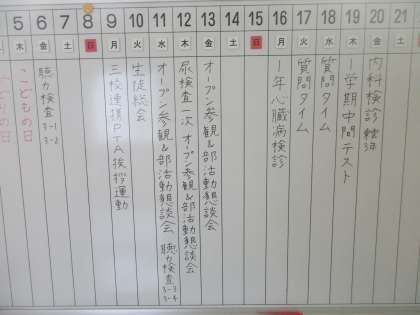 5 6 7 8 9 10 11 12 13 14 15 16 17 18 19 20 21
木 金 土 日 月 火 水 木 金 土 日 月 火 水 木 金 土
みどりの日
こどもの日
聴力検査 3-1 3-2
三校連携PTA挨拶運動
生徒総会
オープン参観&部活動懇談会 聴力検査 3-3 3-4
尿検査一次 オープン参観&部活動懇談会
オープン参観&部活動懇談会
1年心臓病検診
質問タイム
質問タイム
1学期中間テスト
内科検診 3年